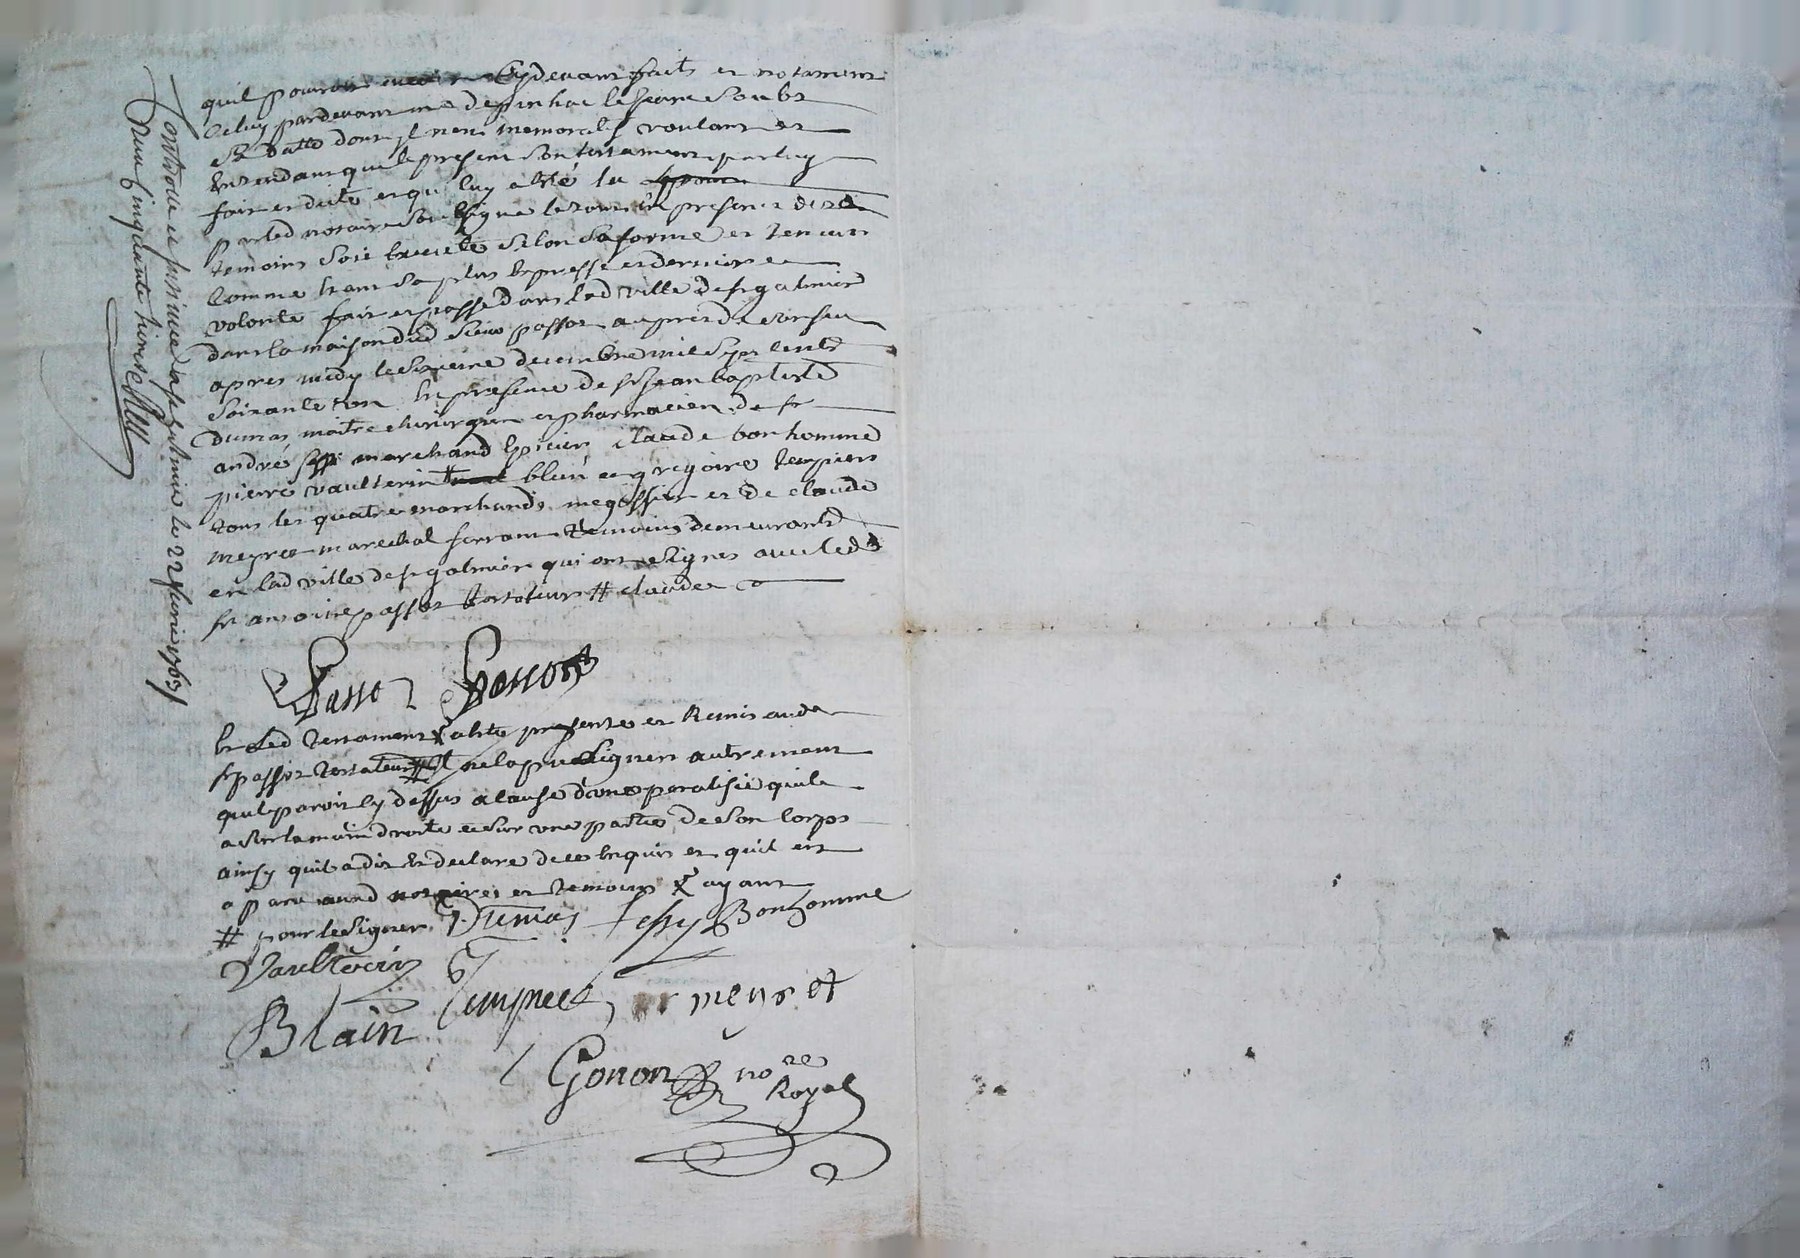 quil pourroit avoir Cydevant faits et notament
Celuy pardevant me despinhac le jeune soubs
sa datte dont il nest memoratif voulant et
Entendant que le present son testament par luy
fait et dicté et qui luy a été lu
par led notaire soussigne le tout en presence desd
temoins soit Execute selon sa forme et teneur
Comme Etant sa plus Expresse et derniere
volonté fait et passé dans lad ville de st galmier
dans la maison dud sieur passot aupres de son feu
apres midy le sixieme decembre mil sept Cents
soixante un En presence de sr jean baptiste
Dumas maitre chirurgien et pharmacien de sr
andré marchand Epicier claude bonhomme
pierre vaulterin # blain et gregoire tempier
tous les quatre marchands megissier et de claude
meyret marechal ferrant temoins demeurants
en lad ville de st galmier qui ont signes avec led
sr antoine passot testateur # claude
Passot Passot
Et led testament a été presenté et Remis aud
sr passot testateur il ne la pu signer autrement
quil paroit Cy dessus a Cause d'une paralisie quil
a sur la main droite et sur une partie de son Corps
ainsy quil a dit Et declare de ce Enquis et quil est
aparu aud notaire et temoins ayant
# pour le signer Dumas Bonhomme
Vaulterin
Blain meyret
Gonon nore
Royal
Controlé et insinué a st galmier le 22 1763
Reçu Cinquante livres